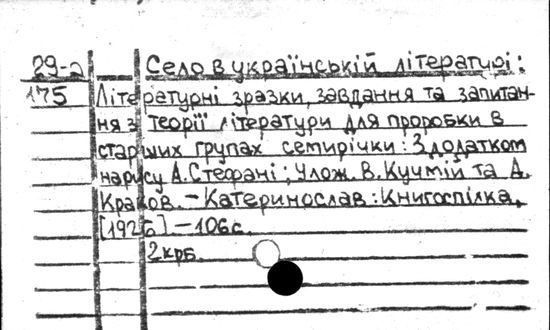 29-а Село в українській літературі:
175 Літературні зразки, завдання та запитан-
ня з теорії літератури для проробки в
старших групах семирічки: З додатком
нарису А. Стефані; Улож. В. Кучмій та А.
Краков. – Катеринослав: Книгоспілка,
[1926] – 106 с.
2 крб.